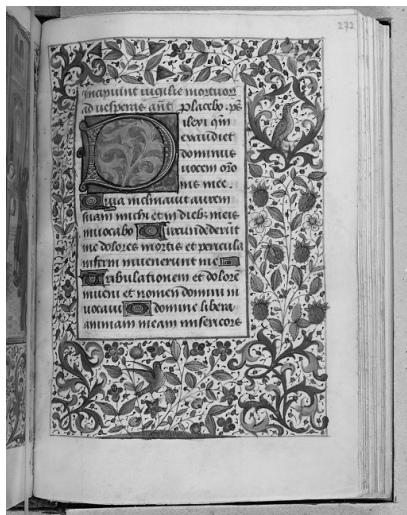 272
Incipiunt vigilie mortuor
ad vesperas ant placebo. ps
Dilexi qm
exaudiet
dominus
vocem oro
nis mee.
Quia inclinavit aurem
suam michi et in dieb; meis
invocabo Circundederunt
me dolores mortis et pericula
inferni invenerunt me
Tribulationem et dolore
inveni et nomen domini in
vocavi O domine libera
animam meam misericors